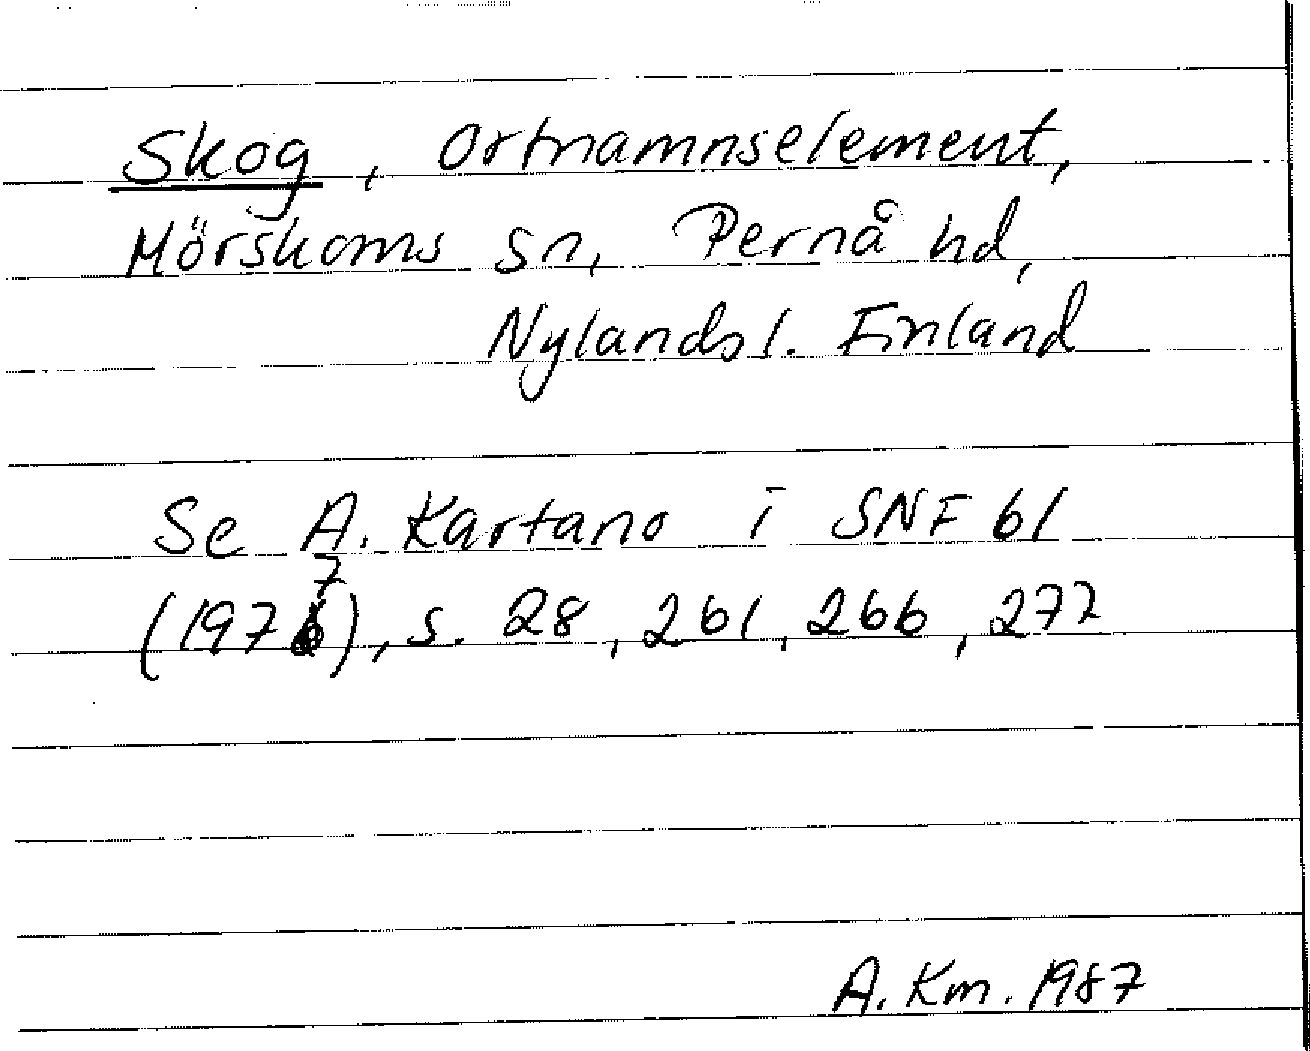 Skog, Ortnamnselement,
Mörskoms sn, Pernå hd,
Nylands l. Finland
Se A. Kartano i SNF 61
(1977), s. 28, 261, 266, 277
A. Km. 1987